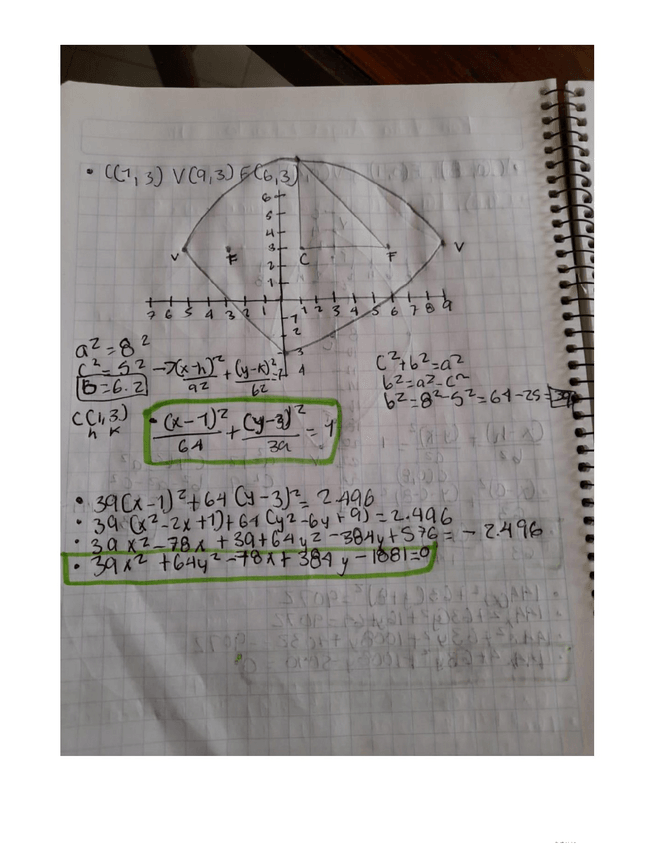 • C(1,3) V(9,3) F(6,3)
6
5
4
3
2
1
V F C F V
7 6 5 4 3 2 1 1 2 3 4 5 6 7 8 9
1
2
3
4
a²=8²
c²=5²
b=6.2
→ (x-h)²/a² + (y-k)²/b² = 1
C(1,3)
h k
c²+b²=a²
b²=a²-c²
b²=8²-5²=64-25=39
• (x-1)²/64 + (y-3)²/39 = 1
• 39(x-1)²+64(y-3)²=2.496
• 39(x²-2x+1)+64(y²-6y+9)=2.496
• 39x²-78x+39+64y²-384y+576=-2.496
• 39x²+64y²-78x+384y-1881=0